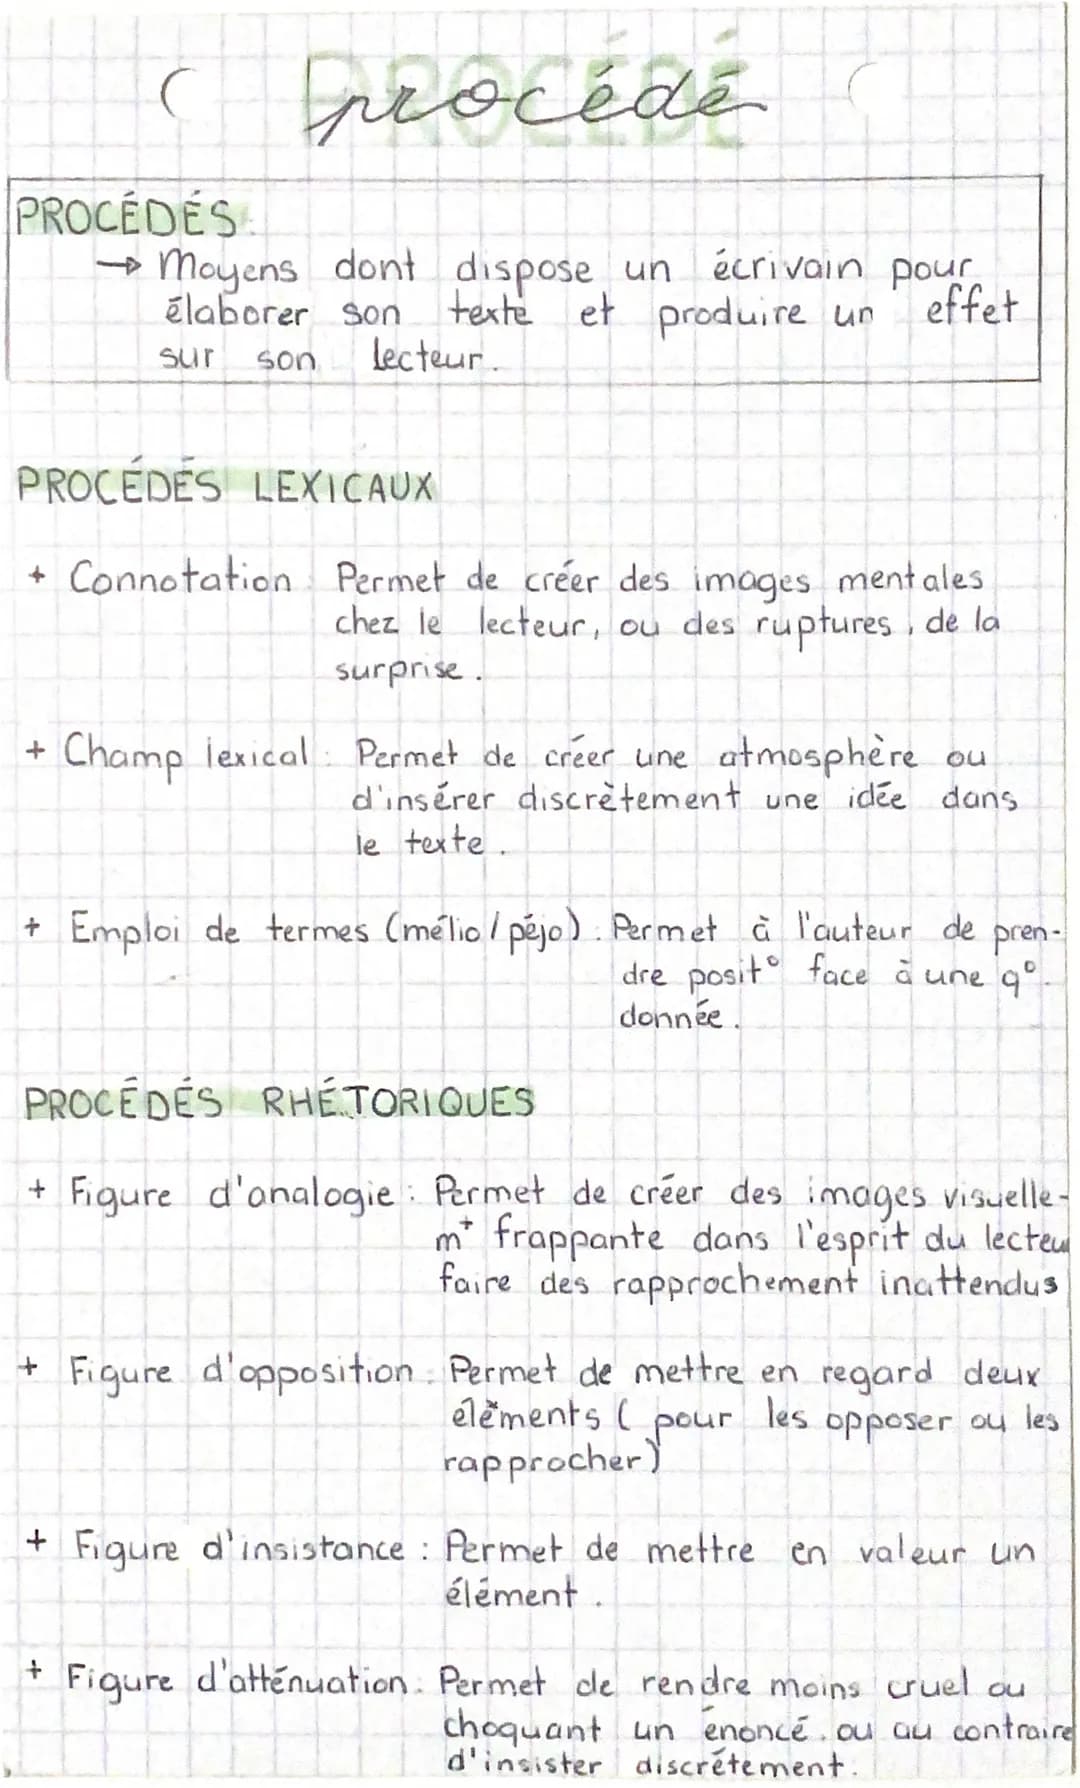 PROCÉDÉ
procédé
PROCÉDÉS
→ Moyens dont dispose un écrivain pour
élaborer son texte et produire un effet
sur son lecteur.
PROCÉDÉS LEXICAUX
+ Connotation : Permet de créer des images mentales
chez le lecteur, ou des ruptures, de la
surprise.
+ Champ lexical : Permet de créer une atmosphère ou
d'insérer discrètement une idée dans
le texte.
+ Emploi de termes (mélio/péjo) : Permet à l'auteur de pren-
dre posit° face à une q°
donnée.
PROCÉDÉS RHÉTORIQUES
+ Figure d'analogie : Permet de créer des images visuelle-
mt frappante dans l'esprit du lecteu
faire des rapprochement inattendus
+ Figure d'opposition : Permet de mettre en regard deux
éléments (pour les opposer ou les
rapprocher)
+ Figure d'insistance : Permet de mettre en valeur un
élément.
+ Figure d'atténuation : Permet de rendre moins cruel ou
choquant un énoncé ou au contraire
d'insister discrétement.